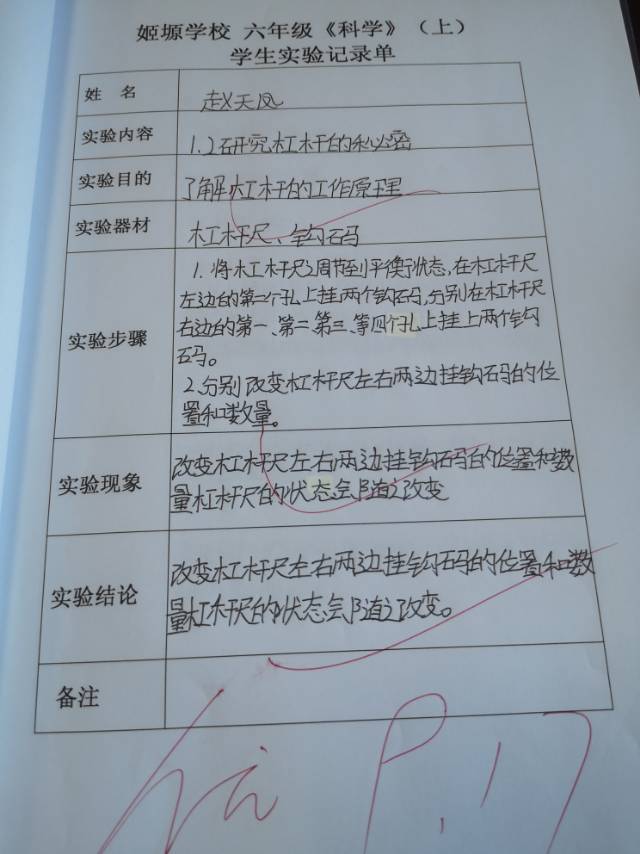 姬塬学校 六年级《科学》（上）
学生实验记录单
姓 名 赵天凤
实验内容 1.2研究杠杆的秘密
实验目的 了解杠杆的工作原理
实验器材 杠杆尺、钩码
实验步骤
1. 将杠杆尺调节到平衡状态,在杠杆尺
左边的第二个孔上挂两个钩码,分别在杠杆尺
右边的第一、第二、第三、等四个孔上挂上两个钩
码。
2.分别改变杠杆尺左右两边挂钩码的位
置和数量。
实验现象
改变杠杆尺左右两边挂钩码的位置和数
量杠杆尺的状态会随之改变
实验结论
改变杠杆尺左右两边挂钩码的位置和数
量杠杆尺的状态会随之改变。
备注
P.17